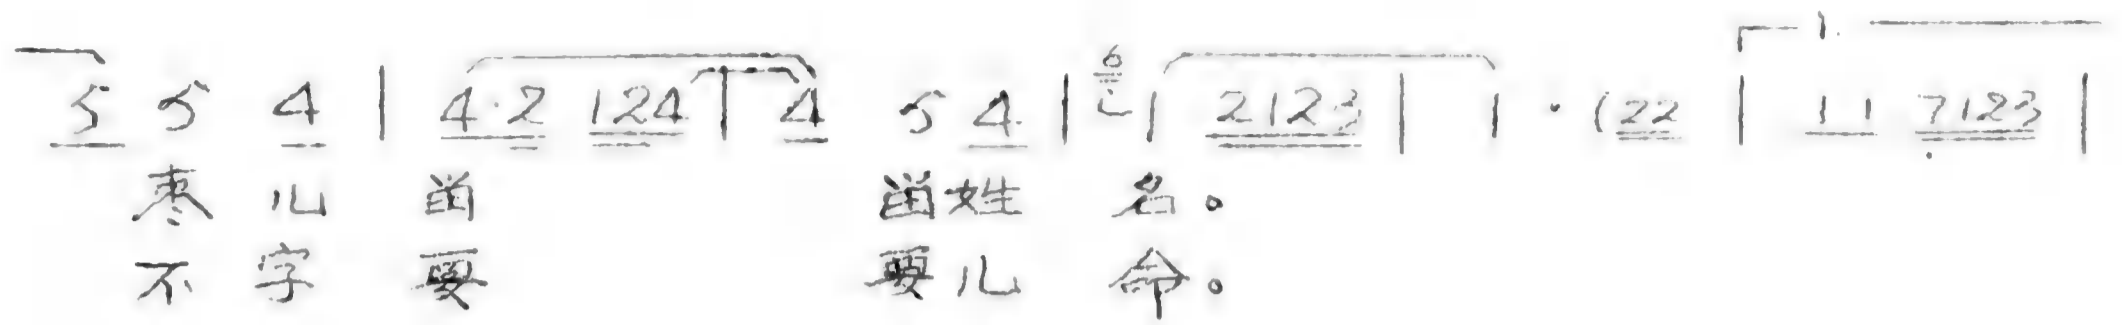 1.
6
5 5 4 | 4·2 124 | 4 5 4 | 1 2123 | 1 · (22 | 11 7123 |
枣儿 姓名。
不字要 要儿命。